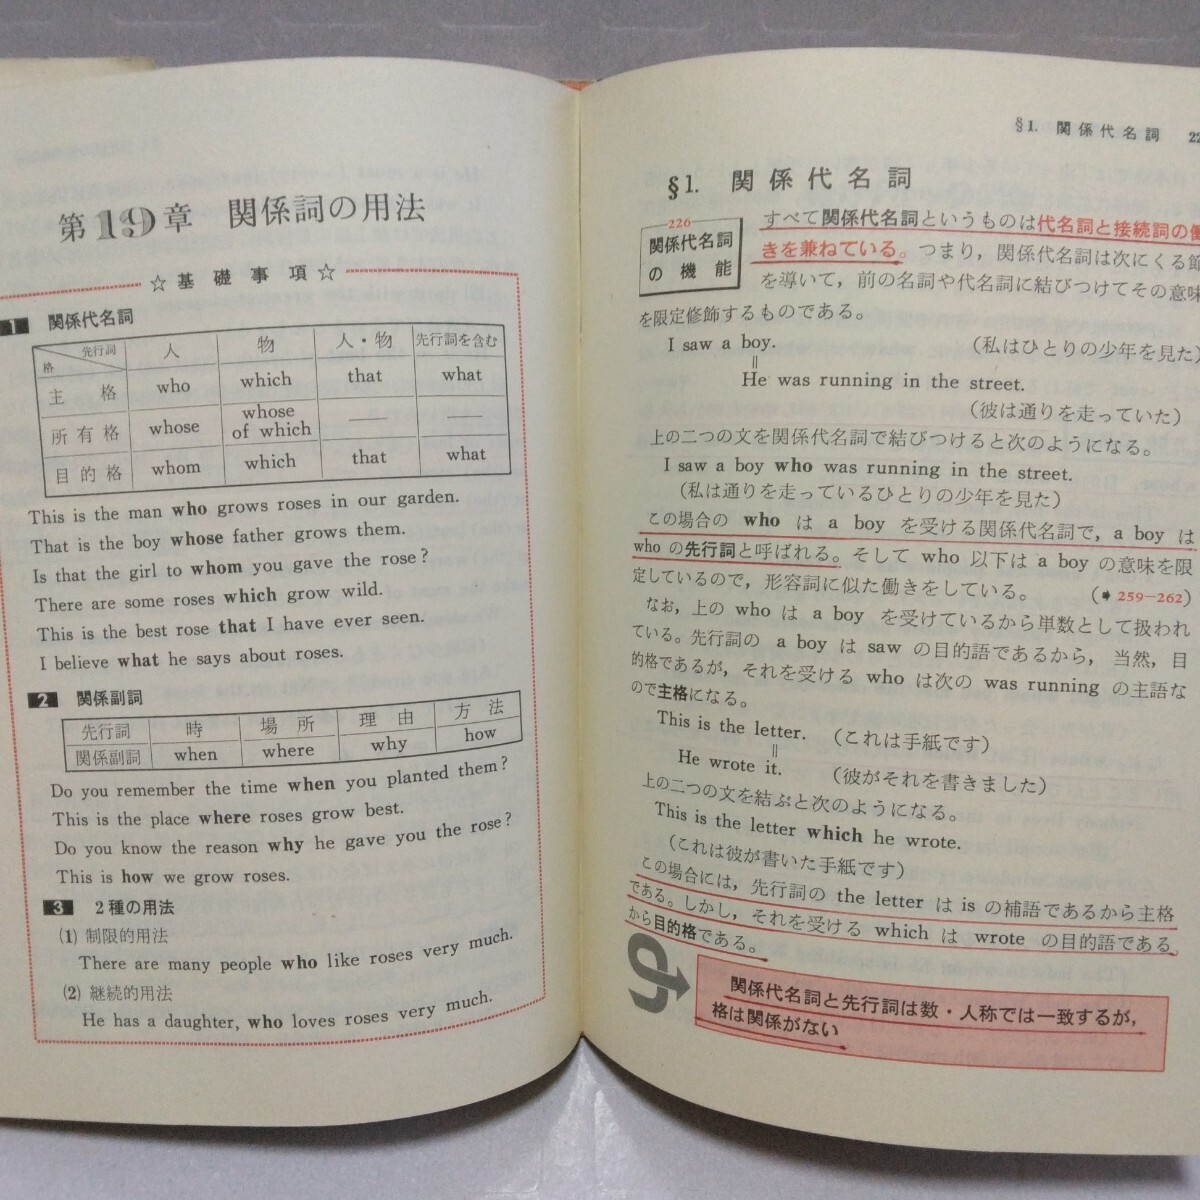 第19章 関係詞の用法
☆基礎事項☆
1 関係代名詞
格 先行詞 人 物 人・物 先行詞を含む
主格 who which that what
所有格 whose whose of which
目的格 whom which that what
This is the man who grows roses in our garden.
That is the boy whose father grows them.
Is that the girl to whom you gave the rose?
There are some roses which grow wild.
This is the best rose that I have ever seen.
I believe what he says about roses.
2 関係副詞
先行詞 時 場所 理由 方法
関係副詞 when where why how
Do you remember the time when you planted them?
This is the place where roses grow best.
Do you know the reason why he gave you the rose?
This is how we grow roses.
3 2種の用法
(1) 制限的用法
There are many people who like roses very much.
(2) 継続的用法
He has a daughter, who loves roses very much.
§1. 関係代名詞 22
§1. 関係代名詞
226
関係代名詞の機能
すべて関係代名詞というものは代名詞と接続詞の働
きを兼ねている。つまり，関係代名詞は次にくる節
を導いて，前の名詞や代名詞に結びつけてその意味
を限定修飾するものである。
I saw a boy. (私はひとりの少年を見た)
‖
He was running in the street.
(彼は通りを走っていた)
上の二つの文を関係代名詞で結びつけると次のようになる。
I saw a boy who was running in the street.
(私は通りを走っているひとりの少年を見た)
この場合の who は a boy を受ける関係代名詞で，a boy は
who の先行詞と呼ばれる。そして who 以下は a boy の意味を限
定しているので，形容詞に似た働きをしている。 (➧ 259−262)
なお，上の who は a boy を受けているから単数として扱われ
ている。先行詞の a boy は saw の目的語であるから，当然，目
的格であるが，それを受ける who は次の was running の主語な
ので主格になる。
This is the letter. (これは手紙です)
‖
He wrote it. (彼がそれを書きました)
上の二つの文を結ぶと次のようになる。
This is the letter which he wrote.
(これは彼が書いた手紙です)
この場合には，先行詞の the letter は is の補語であるから主格
である。しかし，それを受ける which は wrote の目的語である
から目的格である。
関係代名詞と先行詞は数・人称では一致するが，
格は関係がない